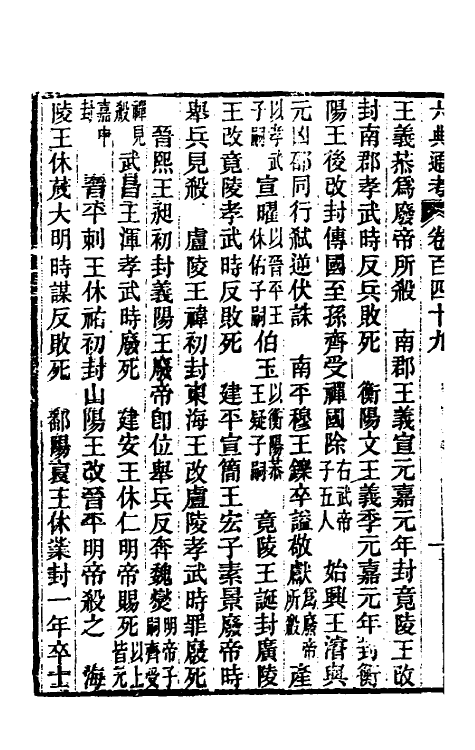 六典通考 卷百四十九
王義恭爲廢帝所殺　南郡王義宣元嘉元年封竟陵王改
封南郡孝武時反兵敗死　衡陽文王義季元嘉元年封衡
陽王後改封傳國至孫齊受禪國除右武帝子五人　始興王濬與
元凶劭同行弑逆伏誅　南平穆王鑠卒諡敬猷爲廢帝所殺產
以孝武子嗣宣曜以晉平王休佑子嗣伯玉以衡陽恭王疑子嗣　竟陵王誕封廣陵
王改竟陵孝武時反敗死　建平宣簡王宏子素景廢帝時
舉兵見殺　盧陵王禕初封東海王改盧陵孝武時罪廢死
晉熙王昶初封義陽王廢帝卽位舉兵反奔魏燮明帝子嗣齊受
禪見殺　武昌王渾孝武時廢死　建安王休仁明帝賜死以上皆元
嘉中封　晉平剌王休祐初封山陽王改晉平明帝殺之　海
陵王休茂大明時謀反敗死　鄱陽哀王休業封一年卒士